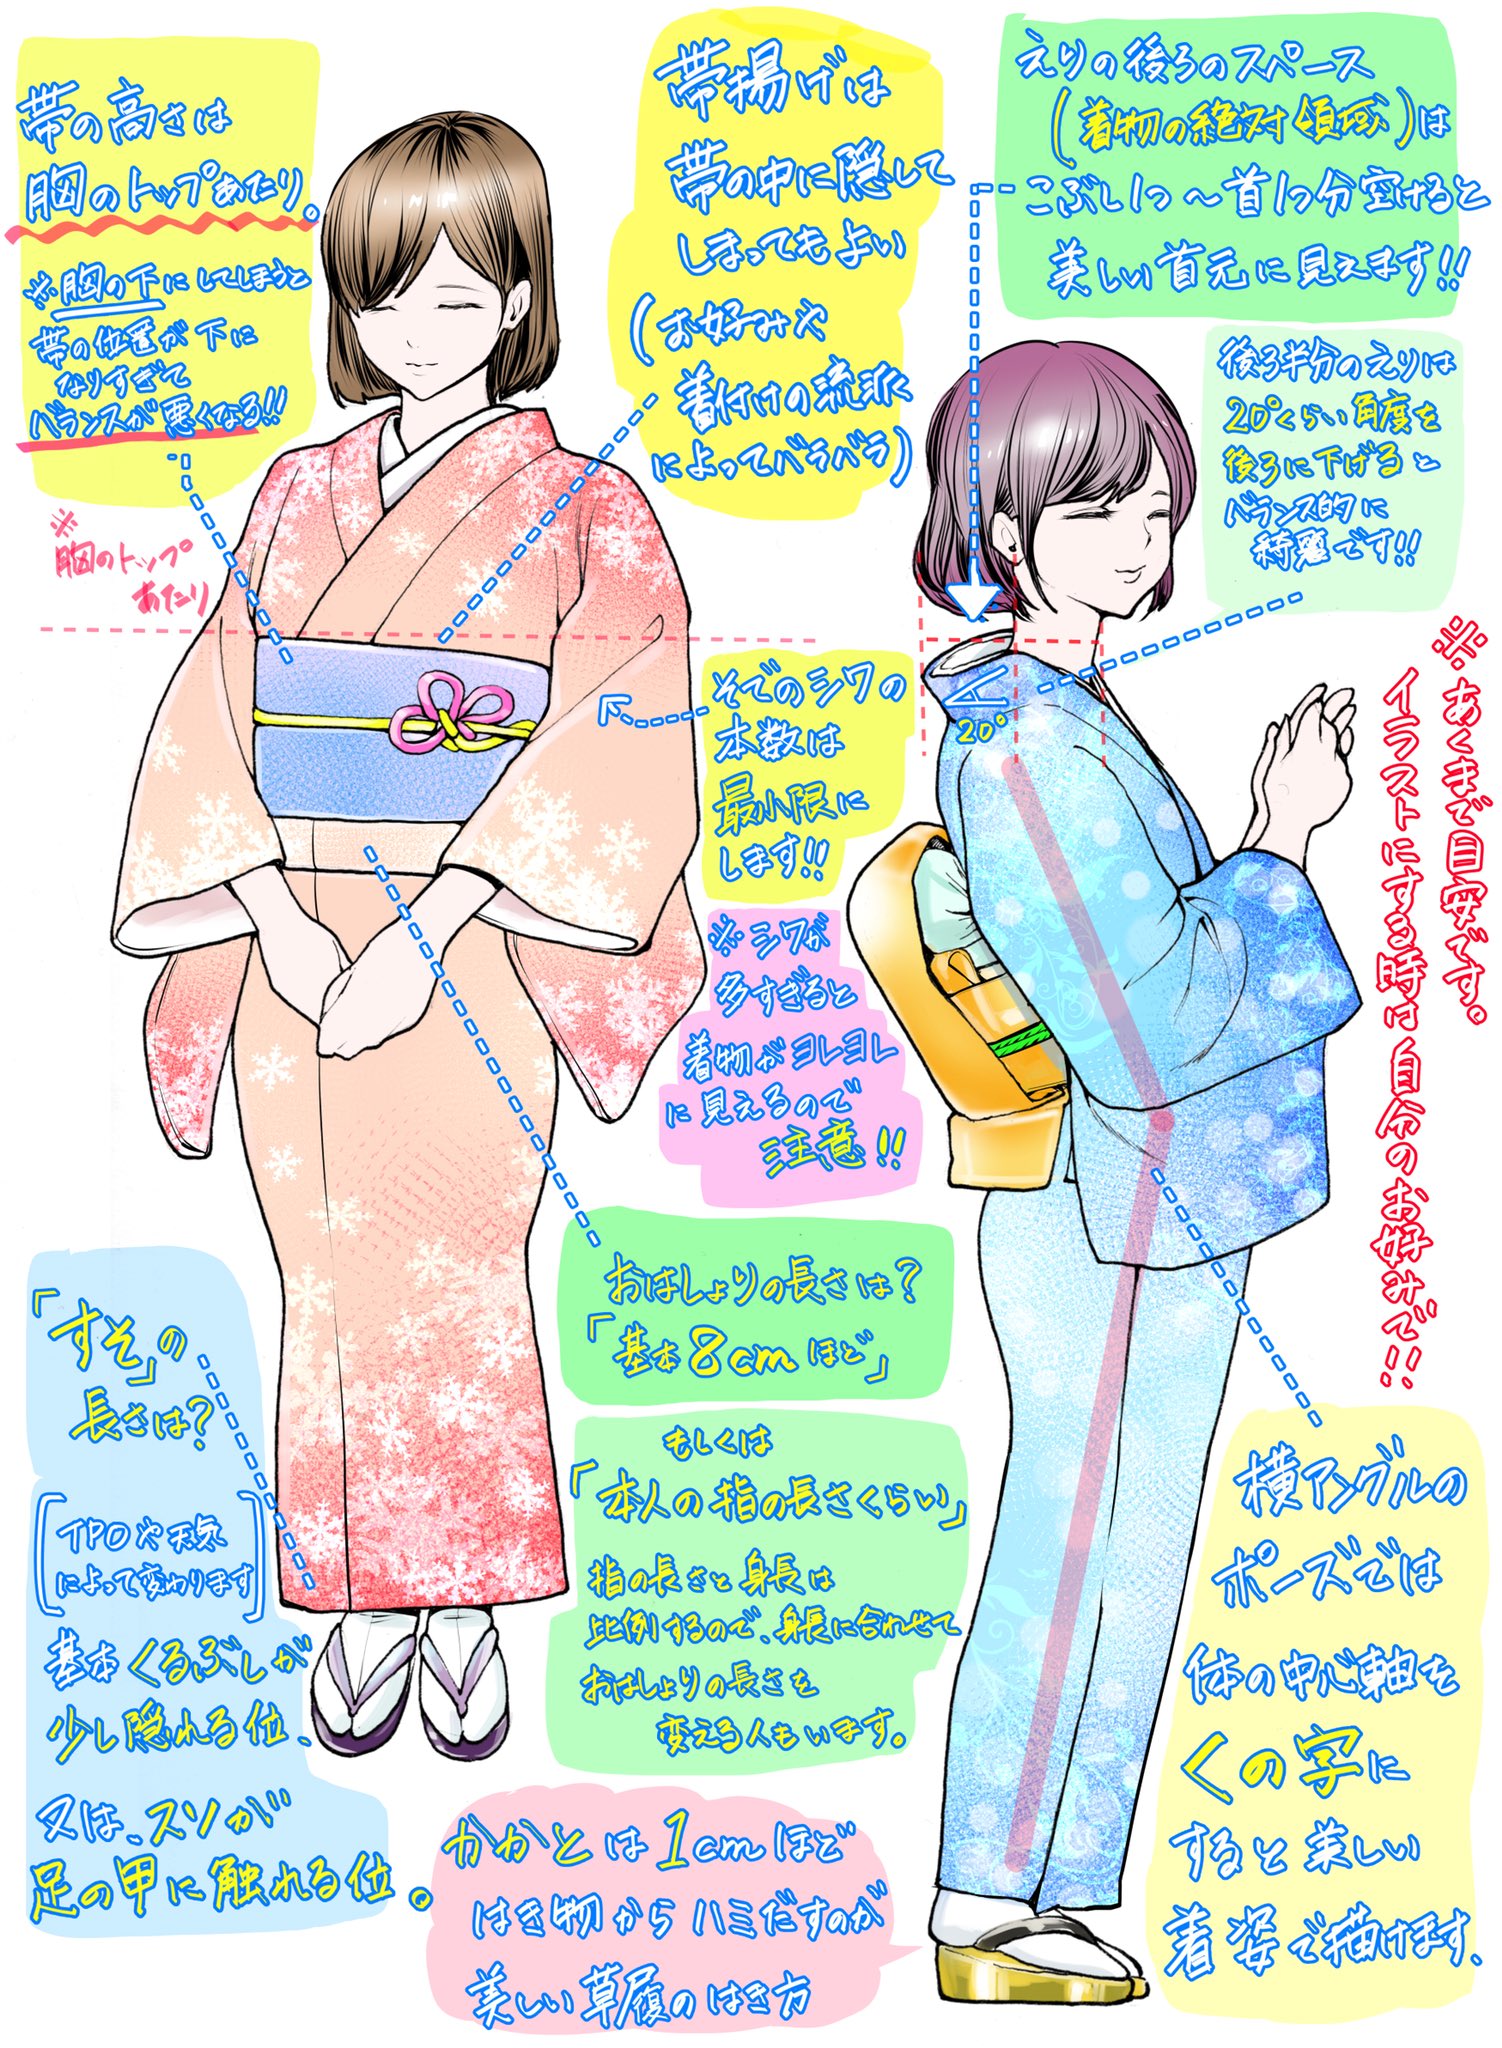 帯の高さは
胸のトップあたり。
※胸の下にしてしまうと
帯の位置が下に
なりすぎて
バランスが悪くなる!!
※
胸のトップ
あたり
帯揚げは
帯の中に隠して
しまってもよい
(お好みや
着付けの流派
によってバラバラ)
えりの後ろのスペース
(着物の絶対領域)は
こぶし1つ～首1つ分空けると
美しい首元に見えます!!
後ろ半分のえりは
20°くらい角度を
後ろに下げると
バランス的に
綺麗です!!
20°
※あくまで目安です。
イラストにする時は自分のお好みで!!
そでのシワの
本数は
最小限に
します!!
※シワが
多すぎると
着物がヨレヨレ
に見えるので
注意!!
おはしょりの長さは?
「基本8cmほど」
もしくは
「本人の指の長さくらい」
指の長さと身長は
比例するので、身長に合わせて
おはしょりの長さを
変える人もいます。
「すそ」の
長さは?
[TPOや天気
によって変わります]
基本くるぶしが
少し隠れる位、
又は、スソが
足の甲に触れる位。
かかとは1cmほど
はき物からハミだすのが
美しい草履のはき方
横アングルの
ポーズでは
体の中心軸を
くの字に
すると美しい
着姿で描けます、